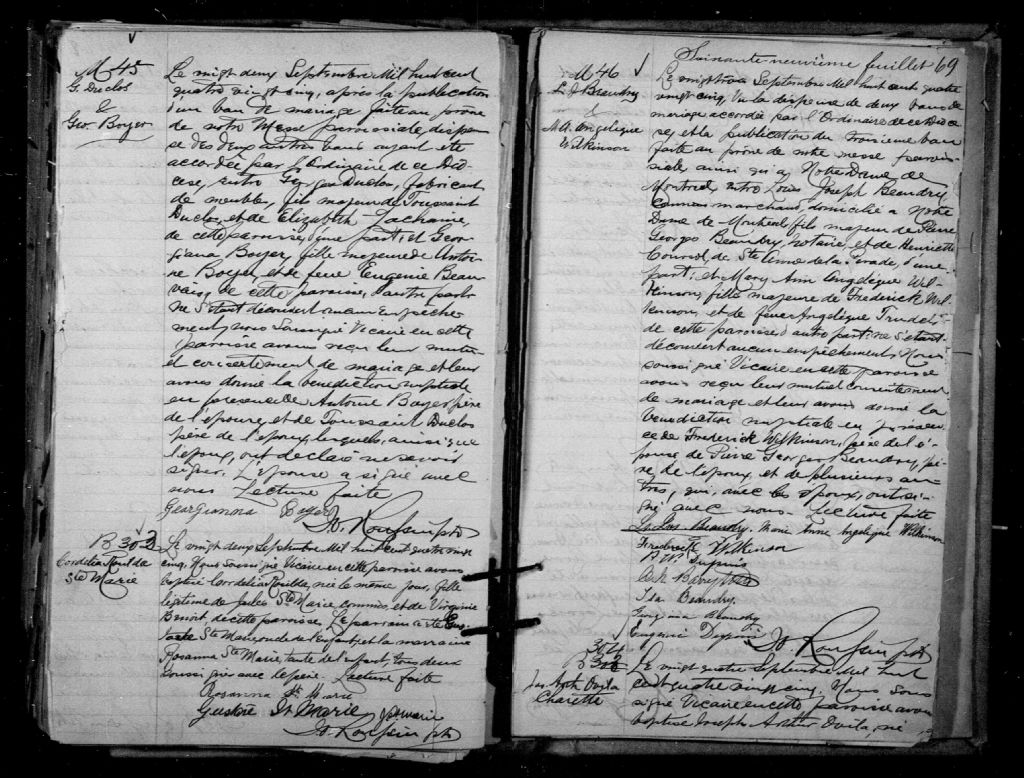 M 45
G. Duclos
&
Geo. Boyer
Le vingt deux Septembre Mil huit cent
quatre vingt cinq, après la publication
d'un ban de mariage faite au prône
de notre Messe paroissiale, dispen
se des deux autres bans ayant été
accordée par l'Ordinaire de ce Dio
cèse, entre Georges Duclos, fabricant
de meubles, fils majeur de Toussaint
Duclos et de Elizabeth Lachaine,
de cette paroisse, d'une part; et Geor
giana Boyer, fille majeure de Antoi
ne Boyer et de feue Eugenie Beau
vais, de cette paroisse, d'autre part:
ne S'étant découvert aucun empêche
ment, nous Soussigné Vicaire en cette
paroisse avons reçu leur mutu
el consentement de mariage et leur
avons donné la bénédiction nuptiale
en présence de Antoine Boyer père
de l'épouse, et de Toussaint Duclos
père de l'époux, lesquels, ainsi que
l'époux, ont déclaré ne savoir
signer. L'épouse a signé avec
nous Lecture faite
Georgianna Boyer
B 303
Cordélia
Ste Marie
Le vingt deux Septembre Mil huit cent quatre vingt
cinq, Nous Soussigné Vicaire en cette paroisse avons
baptisé Cordélia née le même jour, fille
légitime de Jules Ste Marie, commis, et de Virginie
Benoit de cette paroisse. Le parrain a été Gus
tave Ste Marie oncle de l'enfant, et la marraine
Rosanna Ste Marie, tante de l'enfant, tous deux
Soussignés avec le père. Lecture faite
Rosanna St Marie
Gustave St Marie
Soixante-neuvième feuillet 69
M 46
L. J. Beaudry
&
M. A. Angélique
Wilkinson
Le vingt trois Septembre Mil huit cent quatre
vingt cinq, Vu la dispense de deux bans de
mariage accordée par l'Ordinaire de ce Diocè
se, et la publication du troisième ban
faite au prône de notre messe parois
siale ainsi qu'à Notre Dame de
Montréal, entre Louis Joseph Beaudry
Commis marchand, domicilié à Notre
Dame de Montréal fils majeur de Pierre
Georges Beaudry, Notaire, et de Henriette
Coursol, de Ste Anne de la Pérade, d'une
part; et Mary Ann Angélique Wil
kinson, fille majeure de Frederick Wil
kinson, et de feue Angélique Trudel,
de cette paroisse, d'autre part: ne S'étant
découvert aucun empêchement, Nous
soussigné Vicaire en cette paroisse
avons reçu leur mutuel consentement
de mariage et leur avons donné la
bénédiction nuptiale en présen
ce de Frederick Wilkinson, père de l'é
pouse de Pierre Georges Beaudry, pè
re, de l'époux, et de plusieurs au
tres, qui, avec les époux, ont si
gné, avec nous. Lecture faite
Ls Jos Beaudry. Marie Anne Angelique Wilkinson
Frederick Wilkinson
Beaudry
Eugénie
304
Jos. Arth. Ovila
Charette
Le vingt quatre Septembre Mil huit
cent quatre vingt cinq. Nous Sous
signé Vicaire en cette paroisse avons
baptisé Joseph Arthur Ovila, né